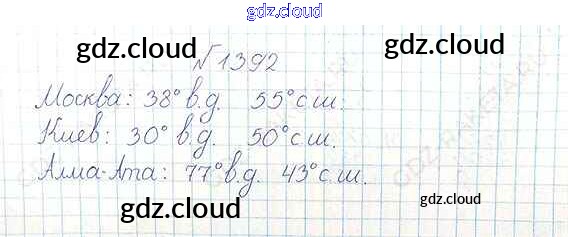 gdz.cloud
gdz.cloud gdz.cloud
№1392
Москва: 38° в.д. 55° с.ш.
Киев: 30° в.д. 50° с.ш.
Алма-Ата: 77° в.д. 43° с.ш.
gdz.cloud gdz.cloud